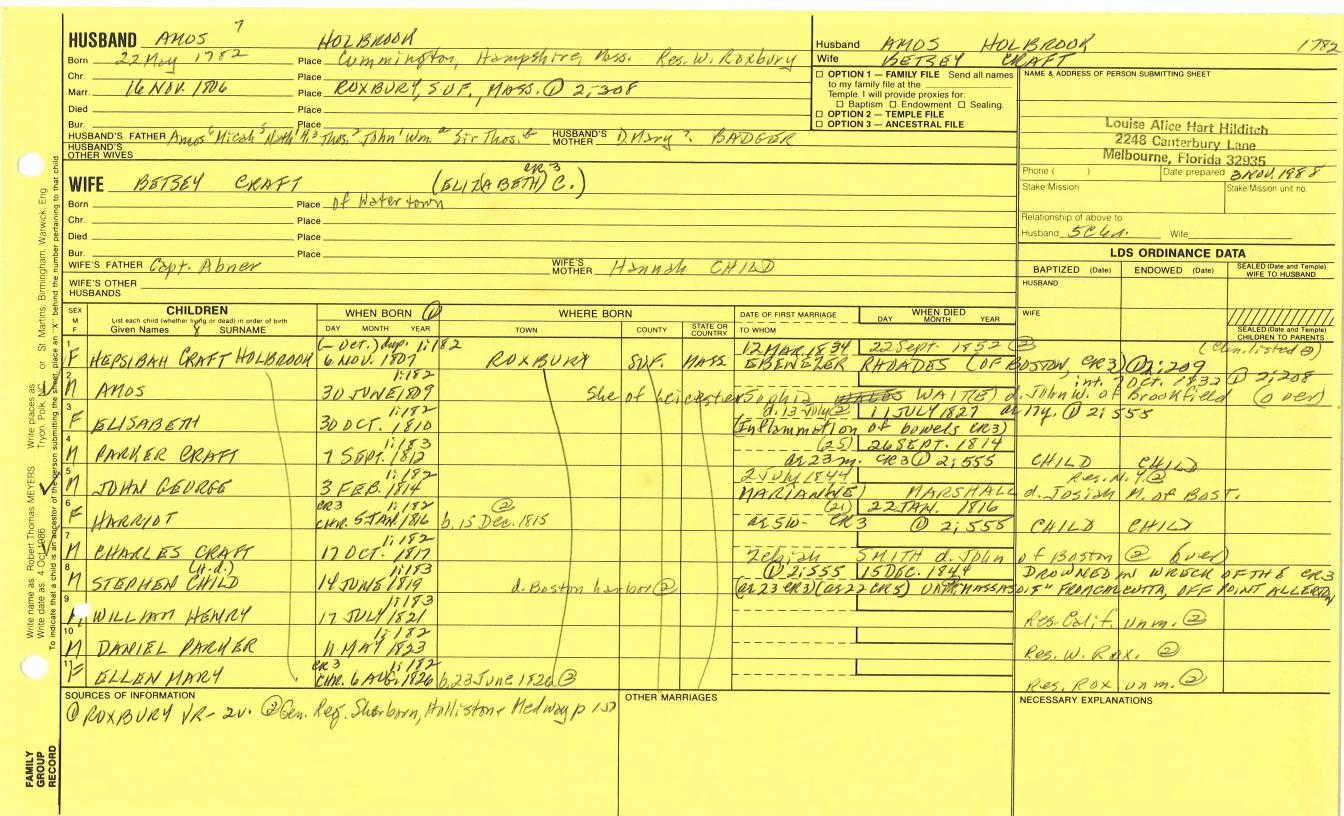 HUSBAND AMOS 7 HOLBROOK
Born 22 May 1782 Place Cummington, Hampshire, Mass. Res. W. Roxbury
Chr. Place
Marr. 16 NOV. 1806 Place ROXBURY, SUF., MASS. ① 2:308
Died Place
Bur. Place
HUSBAND'S FATHER Amos Micah Thos. John Wm. Sir Thos. HUSBAND'S MOTHER D. Mary ? BADGER
HUSBAND'S OTHER WIVES
Husband AMOS HOLBROOK 1782
Wife BETSEY CRAFT
OPTION 1 — FAMILY FILE Send all names
to my family file at the
Temple. I will provide proxies for:
Baptism Endowment Sealing.
OPTION 2 — TEMPLE FILE
OPTION 3 — ANCESTRAL FILE
NAME & ADDRESS OF PERSON SUBMITTING SHEET
Louise Alice Hart Hilditch
2248 Canterbury Lane
Melbourne, Florida 32935
Phone ( ) Date prepared 3 NOV. 1988
Stake Mission Stake Mission unit no.
Relationship of above to
Husband 5C6R. Wife
WIFE BETSEY CRAFT (ELIZABETH C.) CR 3
Born Place of Watertown
Chr. Place
Died Place
Bur. Place
WIFE'S FATHER Capt. Abner WIFE'S MOTHER Hannah CHILD
WIFE'S OTHER HUSBANDS
LDS ORDINANCE DATA
BAPTIZED (Date) ENDOWED (Date) SEALED (Date and Temple) WIFE TO HUSBAND
HUSBAND
WIFE
SEALED (Date and Temple) CHILDREN TO PARENTS
SEX M F
CHILDREN
List each child (whether living or dead) in order of birth
Given Names SURNAME
WHEN BORN ①
DAY MONTH YEAR
WHERE BORN
TOWN COUNTY STATE OR COUNTRY
DATE OF FIRST MARRIAGE
TO WHOM
WHEN DIED
DAY MONTH YEAR
1 F HEPSIBAH CRAFT HOLBROOK (- Oct.) dup. 1:182
6 NOV. 1807 ROXBURY SUF. MASS. 12 MAR. 1834 22 Sept. 1852 ②
EBENEZER RHOADES (OF BOSTON, CR3) ① 2:209
2 M AMOS 1:182
30 JUNE 1809 int. 7 OCT. 1832 ① 2:208
She of Leicester Sophia WAIT(E) d. John W. of Brookfield (over)
3 F ELISABETH 1:182
30 OCT. 1810 d. 13 July ② 11 JULY 1827 ae 17y. ① 2:555
(Inflammation of bowels CR3)
4 M PARKER CRAFT 1:183
7 SEPT. 1812 (25) 26 SEPT. 1814
ae 23 m. CR3 ① 2:555 CHILD CHILD
5 M JOHN GEORGE 1:182
3 FEB. 1814 2 JULY 1844 Res. N.Y. ②
MARIANNE MARSHALL d. Josiah M. of Bost.
6 F HARRIOT CR3 1:182
CHR. 5 JAN. 1816 ② b. 15 Dec. 1815 (21) 22 JAN. 1816
ae 5w- CR3 ① 2:555 CHILD CHILD
7 M CHARLES CRAFT 1:182
17 OCT. 1817 SMITH d. John of Boston ② (over)
8 M STEPHEN CHILD (H.d.) 1:183
14 JUNE 1819 d. Boston harbor ② ① 2:555 15 DEC. 1844 DROWNED IN WRECK OF THE CR3
(ae 23 CR3) (ae 22 CR5) FROM CALCUTTA, OFF POINT ALLERTON
9 WILLIAM HENRY 1:183
17 JULY 1821 Res. Calif. unm. ②
10 M DANIEL PARKER 1:182
11 MAY 1823 Res. W. Rox. ②
11 F ELLEN MARY CR3 1:182
CHR. 6 AUG. 1826 b. 23 June 1826 ② Res. Rox unm. ②
SOURCES OF INFORMATION
① ROXBURY VR- 2v. ② Gen. Reg. Sherborn, Holliston & Medway p 157
OTHER MARRIAGES
NECESSARY EXPLANATIONS
Write name as: Robert Thomas MEYERS Write places as: Tryon, Polk, NC or St Martins, Birmingham, Warwick, Eng.
Write date as: 4 Oct 1986
To indicate that a child is an ancestor of the person submitting the sheet, place an "X" behind the number pertaining to that child
FAMILY GROUP RECORD